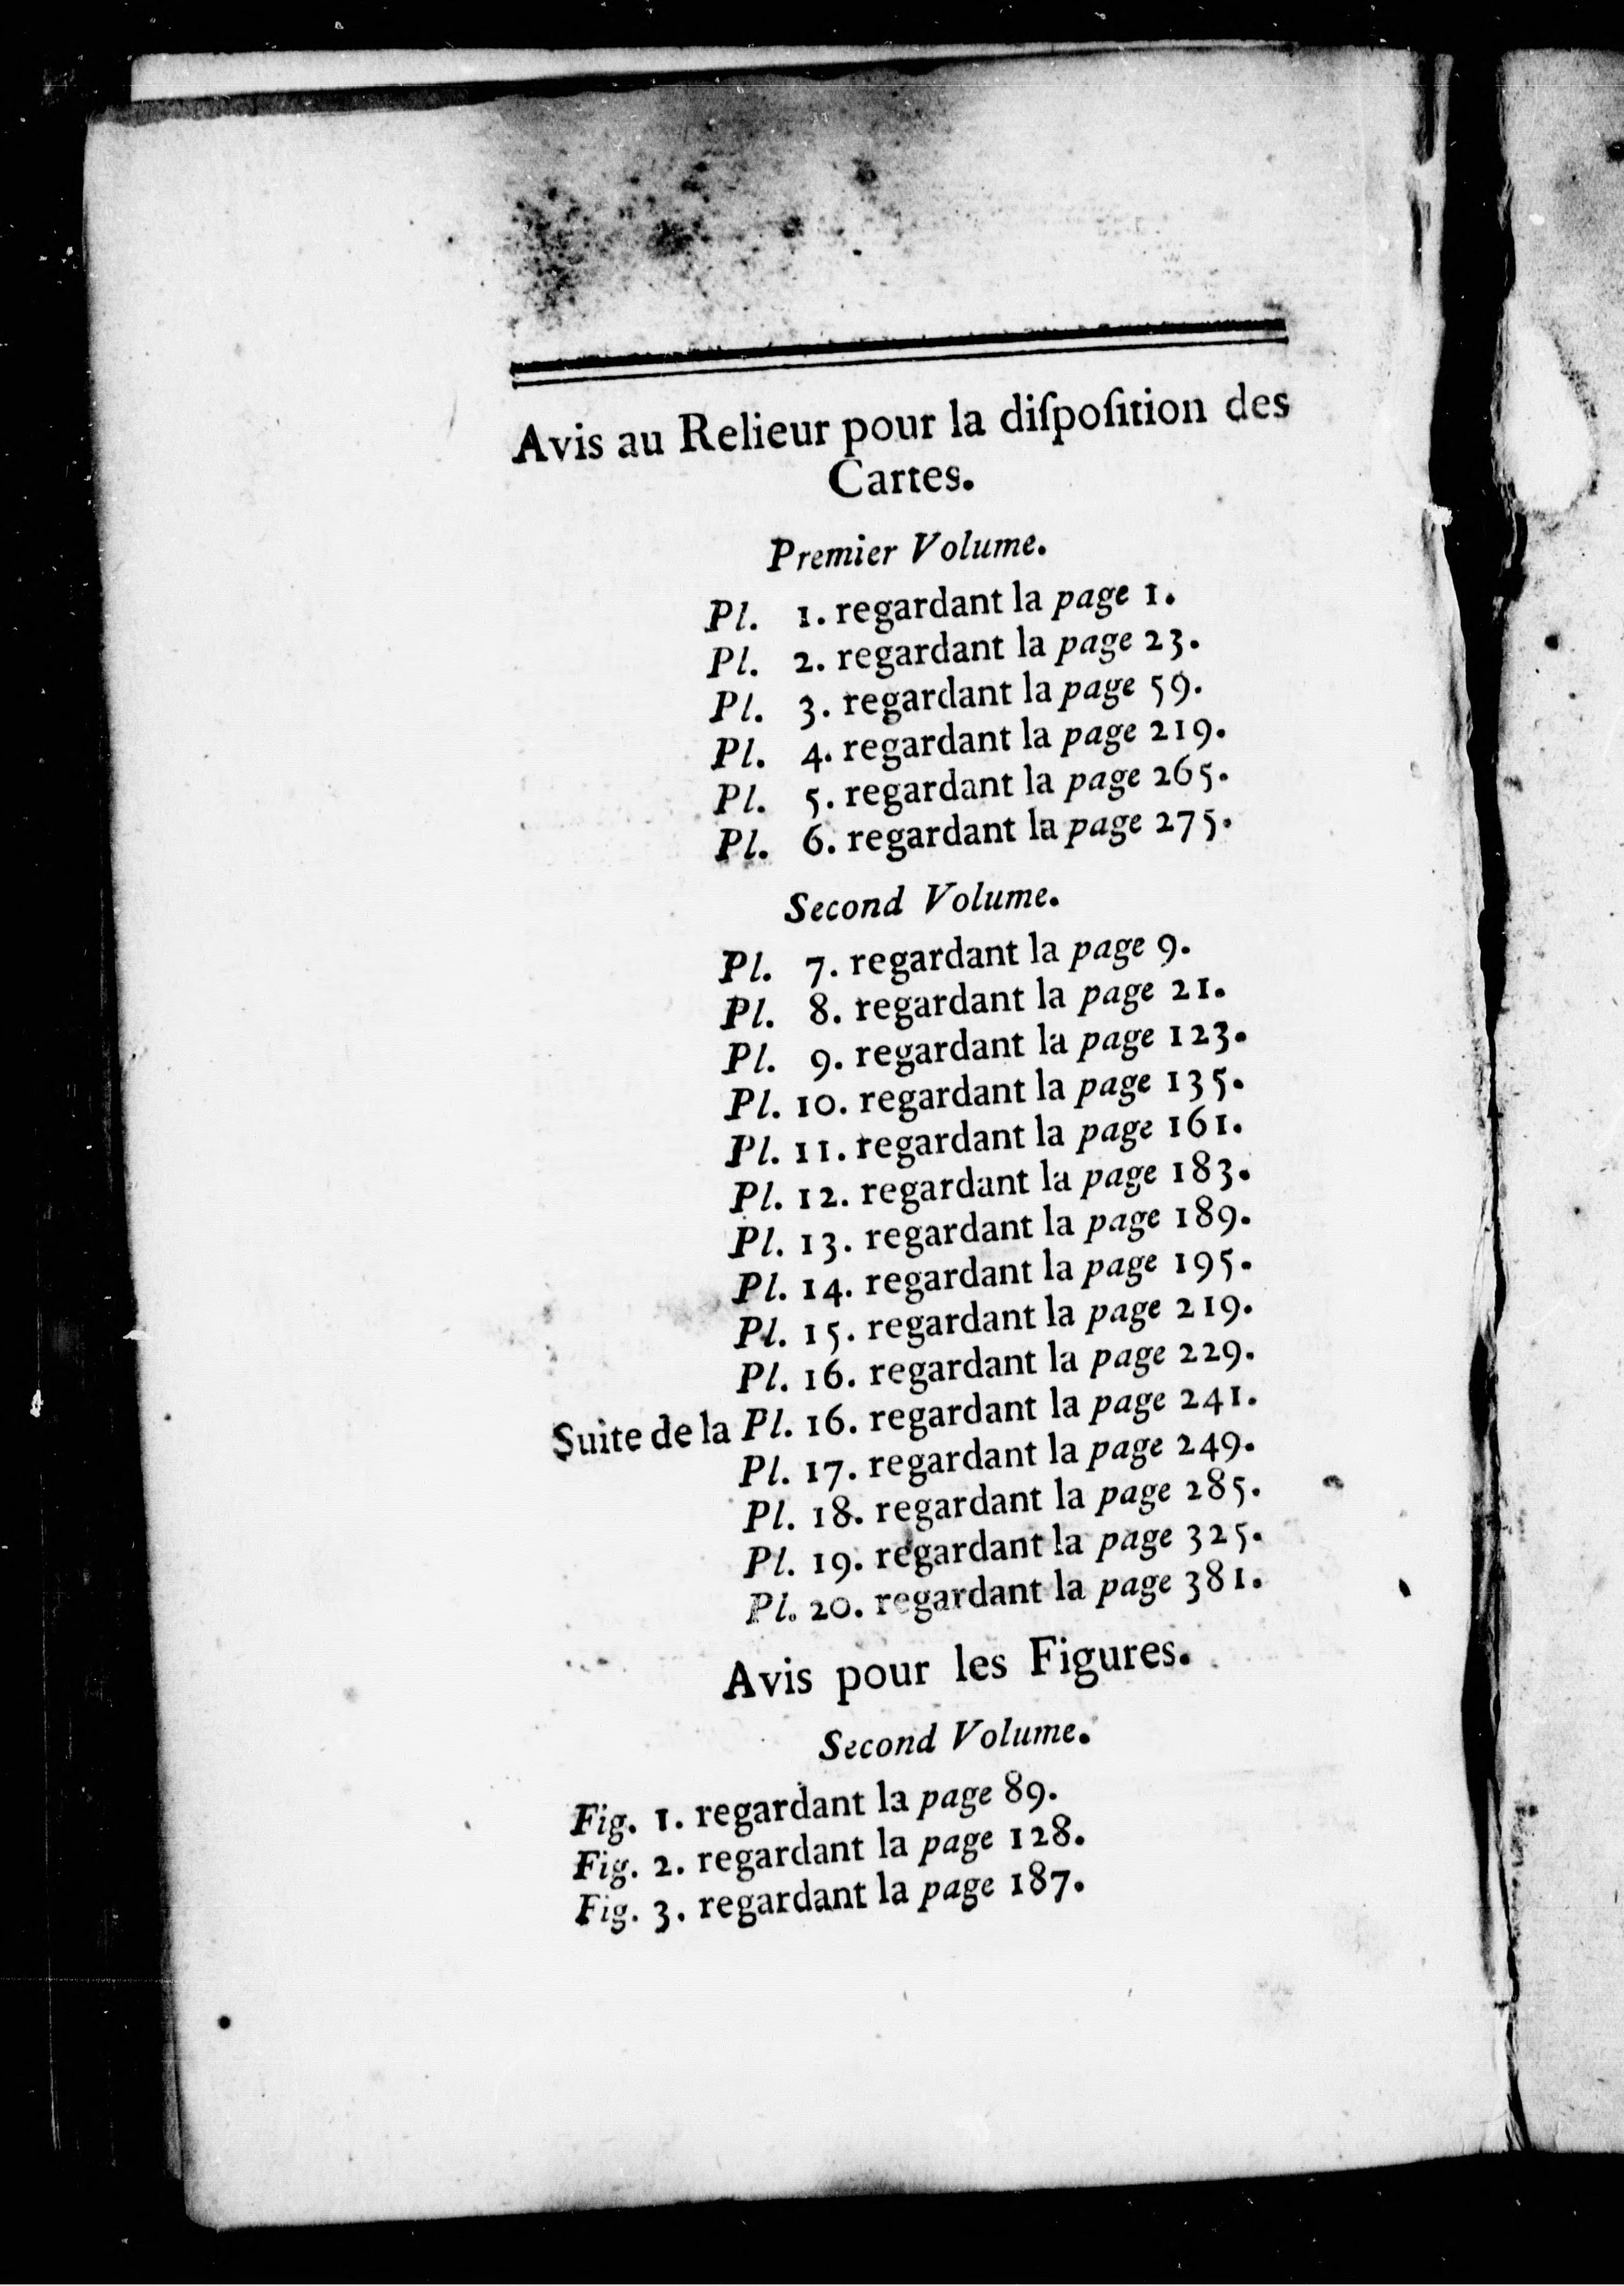 Avis au Relieur pour la diſpoſition des
Cartes.
Premier Volume.
Pl. 1. regardant la page 1.
Pl. 2. regardant la page 23.
Pl. 3. regardant la page 59.
Pl. 4. regardant la page 219.
Pl. 5. regardant la page 265.
Pl. 6. regardant la page 275.
Second Volume.
Pl. 7. regardant la page 9.
Pl. 8. regardant la page 21.
Pl. 9. regardant la page 123.
Pl. 10. regardant la page 135.
Pl. 11. regardant la page 161.
Pl. 12. regardant la page 183.
Pl. 13. regardant la page 189.
Pl. 14. regardant la page 195.
Pl. 15. regardant la page 219.
Pl. 16. regardant la page 229.
Suite de la Pl. 16. regardant la page 241.
Pl. 17. regardant la page 249.
Pl. 18. regardant la page 285.
Pl. 19. regardant la page 325.
Pl. 20. regardant la page 381.
Avis pour les Figures.
Second Volume.
Fig. 1. regardant la page 89.
Fig. 2. regardant la page 128.
Fig. 3. regardant la page 187.